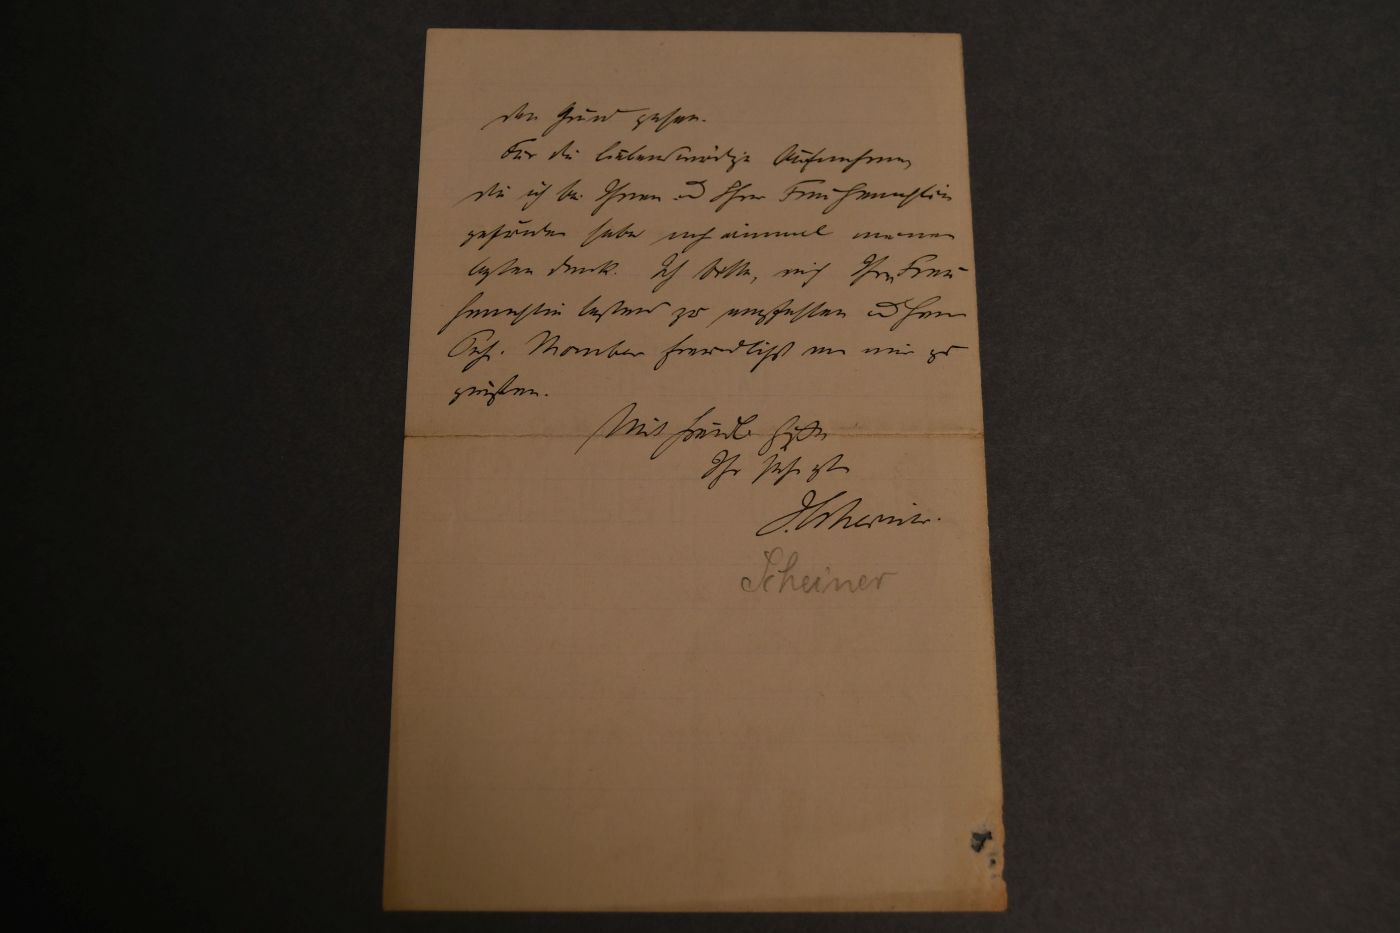 den Grund gehen.
Für die liebenswürdige Aufnahme,
die ich bei Ihnen und Ihrer Frau Gemahlin
gefunden habe noch einmal meinen
besten Dank. Ich bitte, mich Ihrer Frau
Gemahlin bestens zu empfehlen und Herrn
freundlichst von mir zu
grüßen.
Mit
Ihr
J. Scheiner.
Scheiner